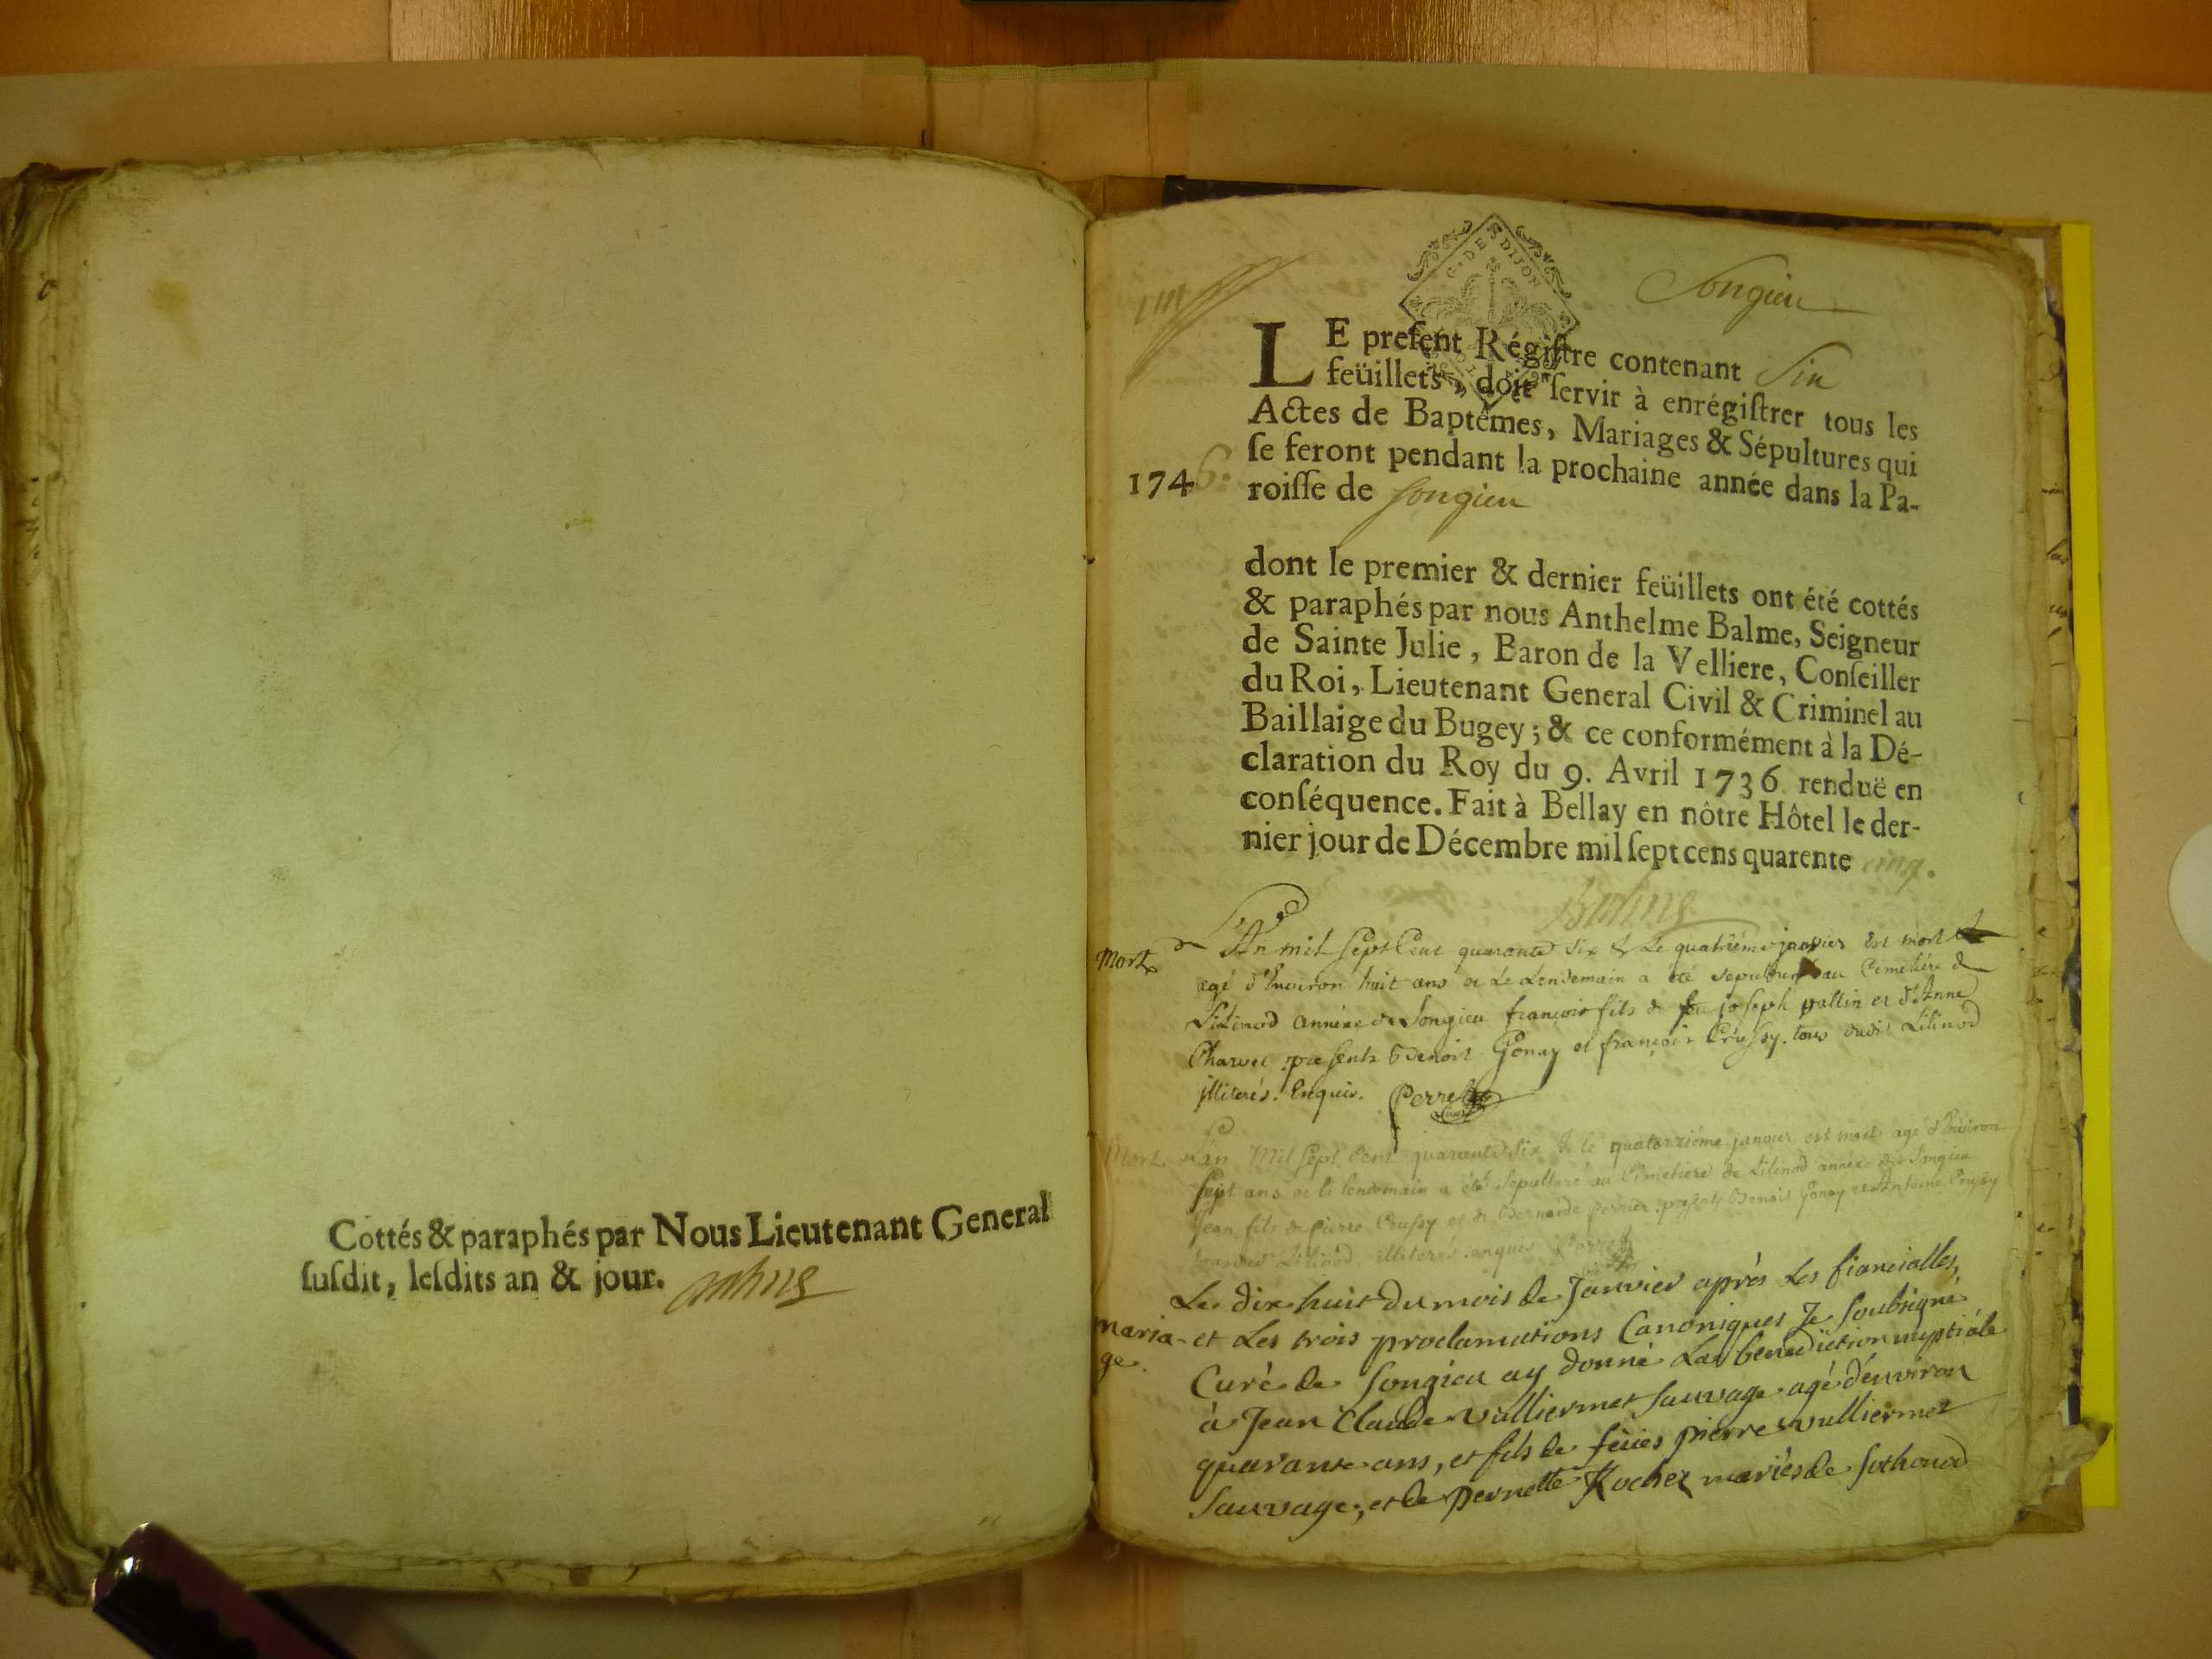 Cottés & paraphés par Nous Lieutenant General
ſuſdit, leſdits an & jour.
G. DE DIJON
Songieu
LE preſent Régiſtre contenant Six
feüillets, doit ſervir à enrégiſtrer tous les
Actes de Baptêmes, Mariages & Sépultures qui
ſe feront pendant la prochaine année dans la Pa-
1746. roiſſe de Songieu
dont le premier & dernier feüillets ont été cottés
& paraphés par nous Anthelme Balme, Seigneur
de Sainte Julie, Baron de la Velliere, Conſeiller
du Roi, Lieutenant General Civil & Criminel au
Baillaige du Bugey; & ce conformément à la Dé-
claration du Roy du 9. Avril 1736 renduë en
conſéquence. Fait à Bellay en nôtre Hôtel le der-
nier jour de Décembre mil ſept cens quarente cinq.
Balme
Mort L'An mil sept Cent quarante six & Le quatriéme janvier Est mort
agé d'Environ huit ans et Le Lendemain a été sepulturé au Cimetiére de
Lilinod annéxe de Songieu françois fils de feu joseph pallin et d'Anne
Charvet presents Benoit Gonay et françois Crussy tous dudit Lilinod
illiterés. Enquis. Perret
Mort L'an Mil sept Cent quarante six & le quatorziéme janvier est mort agé d'Environ
sept ans et le lendemain a été sepulturé au Cimetiere de Lilinod annéxe de Songieu
Jean fils de pierre Crussy et de Bernarde perrier presents Benoit Gonay et Antoine Crussy
Lilinod illiterés enquis Perret
Le dix huit du mois de Janvier aprés Les fiancialles,
maria- et Les trois proclamations Canoniques Je soubsigné
ge. Curé de Songieu ay donné La benediction nuptiale
à Jean Claude vulliermet sauvage agé d'environ
quarante ans, et fils de feües pierre vulliermet
sauvage, et de pernette Rochez mariés de Sothonod